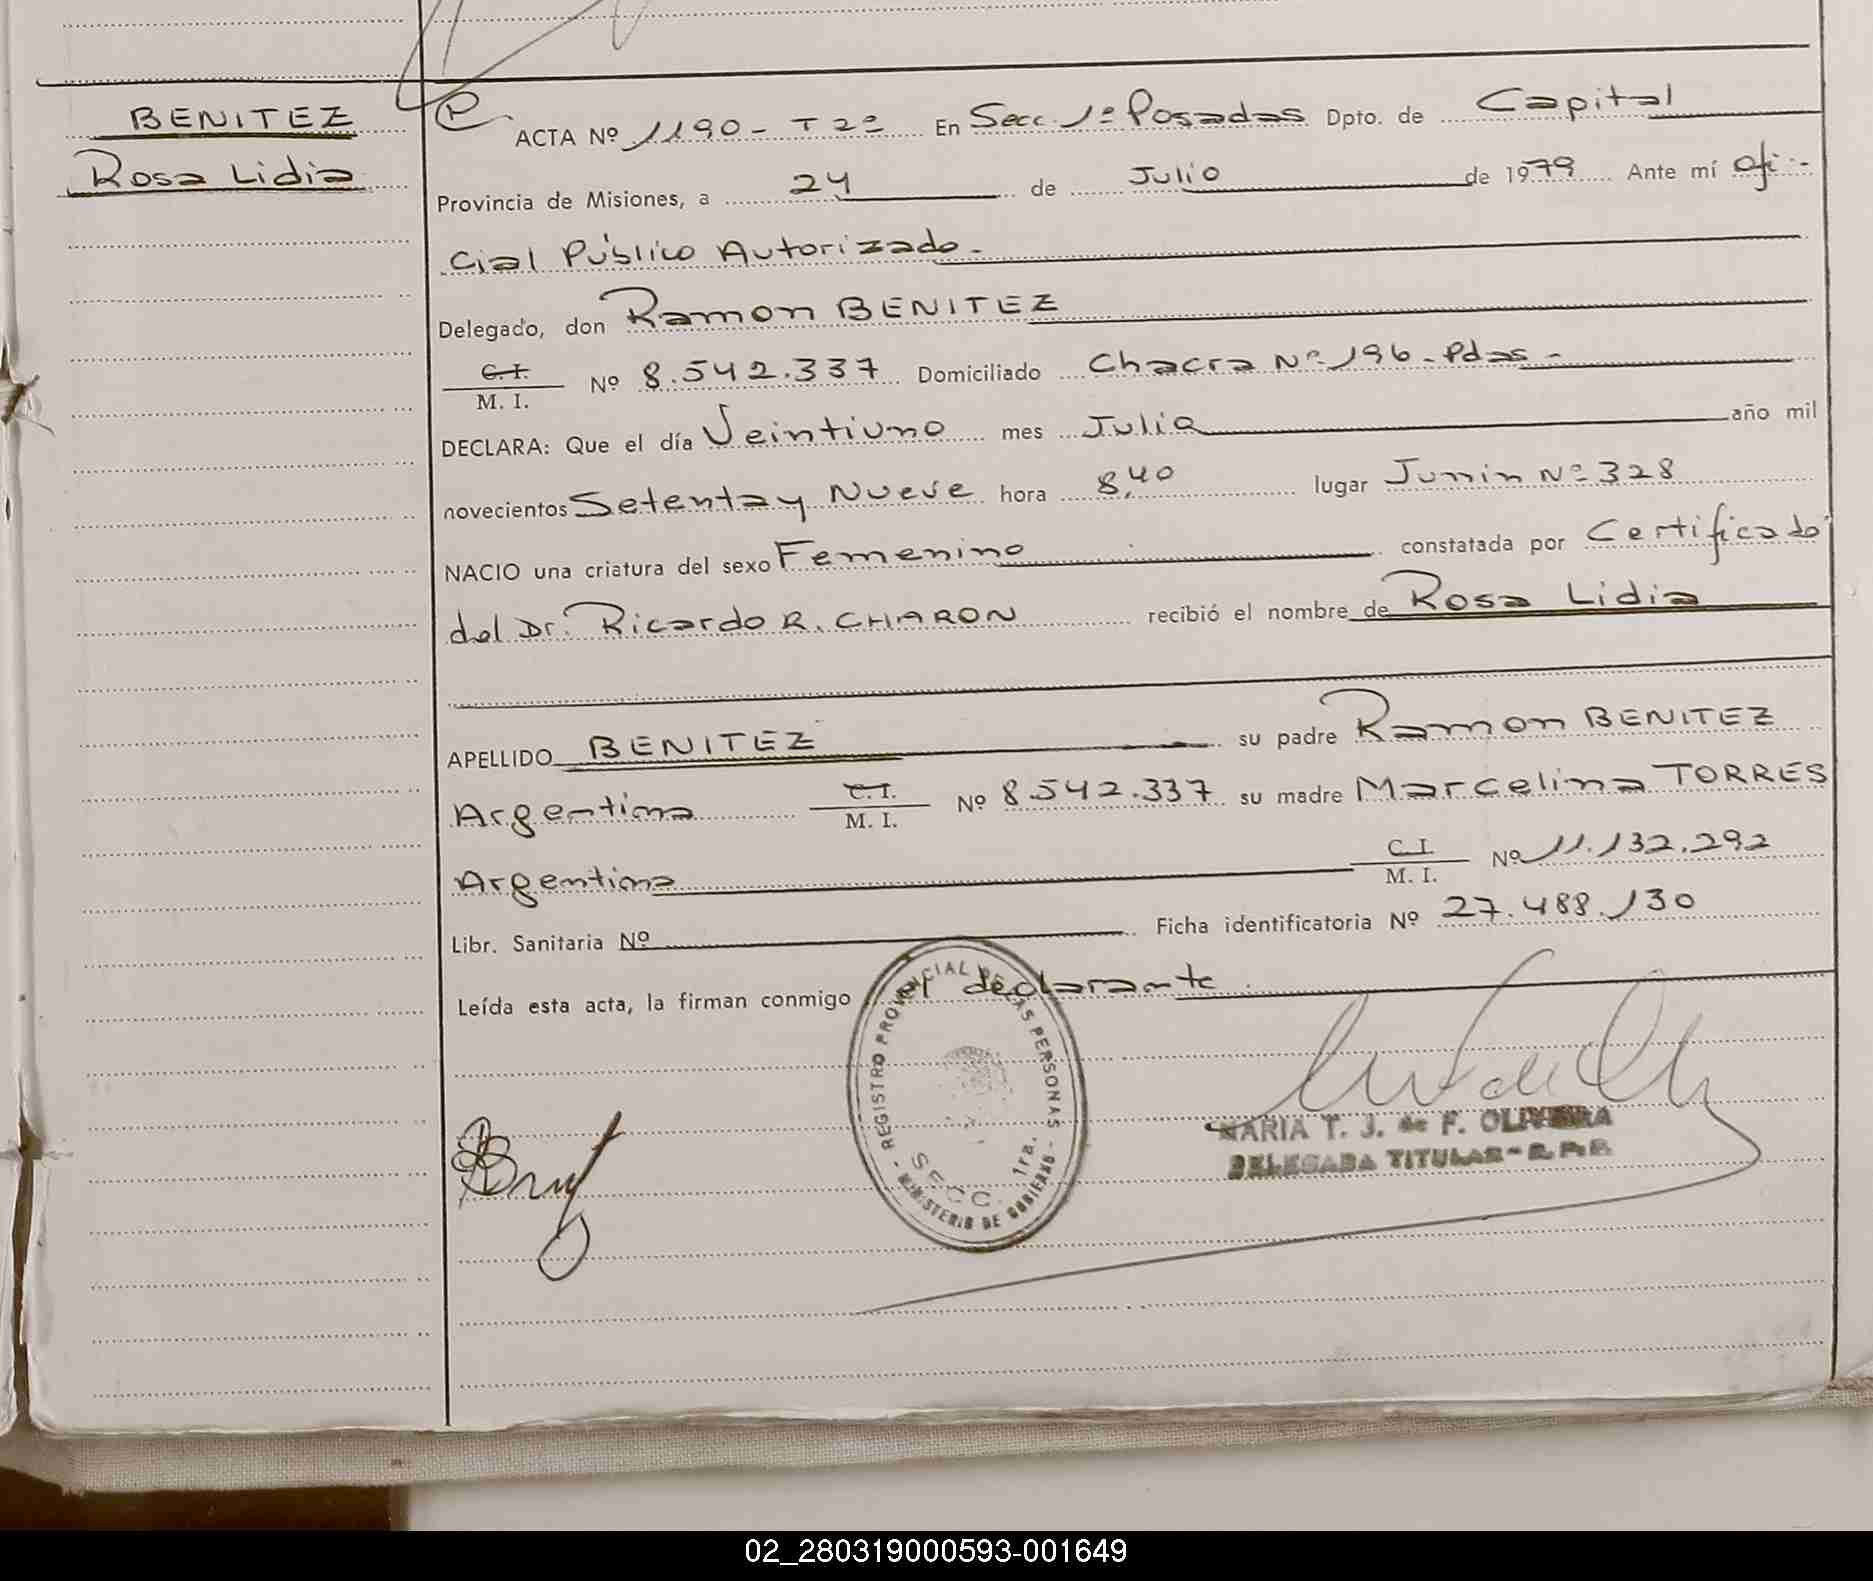 BENITEZ
Rosa Lidia
ACTA Nº 1190 - T 2º En Secc. 1º Posadas Dpto. de Capital
Provincia de Misiones, a 24 de Julio de 1979 Ante mí Ofi-
cial Público Autorizado.
Delegado, don Ramon BENITEZ
C. I. M. I. Nº 8.542.337 Domiciliado Chacra Nº 196 - Pdas -
DECLARA: Que el día Veintiuno mes Julio año mil
novecientos Setenta y Nueve hora 8,40 lugar Junin Nº 328
NACIO una criatura del sexo Femenino constatada por Certificado
del Dr. Ricardo R. CHARON recibió el nombre de Rosa Lidia
APELLIDO BENITEZ su padre Ramon BENITEZ
Argentina C. I. M. I. Nº 8.542.337 su madre Marcelina TORRES
Argentina C. I. M. I. Nº 11.132.292
Libr. Sanitaria Nº Ficha identificatoria Nº 27.488.130
Leída esta acta, la firman conmigo el declarante.
- REGISTRO PROVINCIAL DE LAS PERSONAS -
SECC. 1ra.
MINISTERIO DE GOBIERNO
MARIA T. J. de F. OLIVEIRA
DELEGADA TITULAR - R. P. P.
02_280319000593-001649